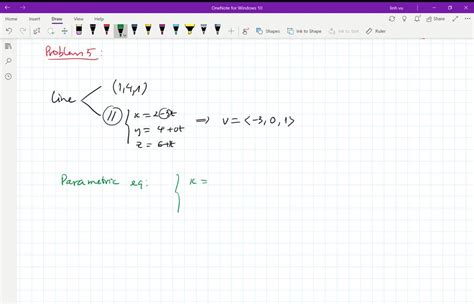 OneNote for Windows 10
linh vu
Home Insert Draw View Help
Ink to Shape Ink to Text Shapes Ruler
Problem 5:
line
(1,4,1)
// x = 2-3t
y = 4+0t ⇒ v = <-3, 0, 1>
z = 6+t
Parametric eq: { x =